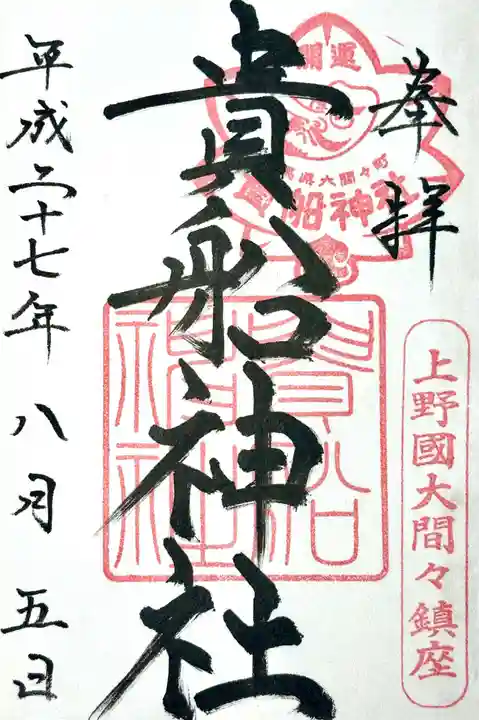 奉拝
上野國大間々鎮座
開運
大間々町
貴船神社
貴船神社
貴船神社
平成二十七年八月五日